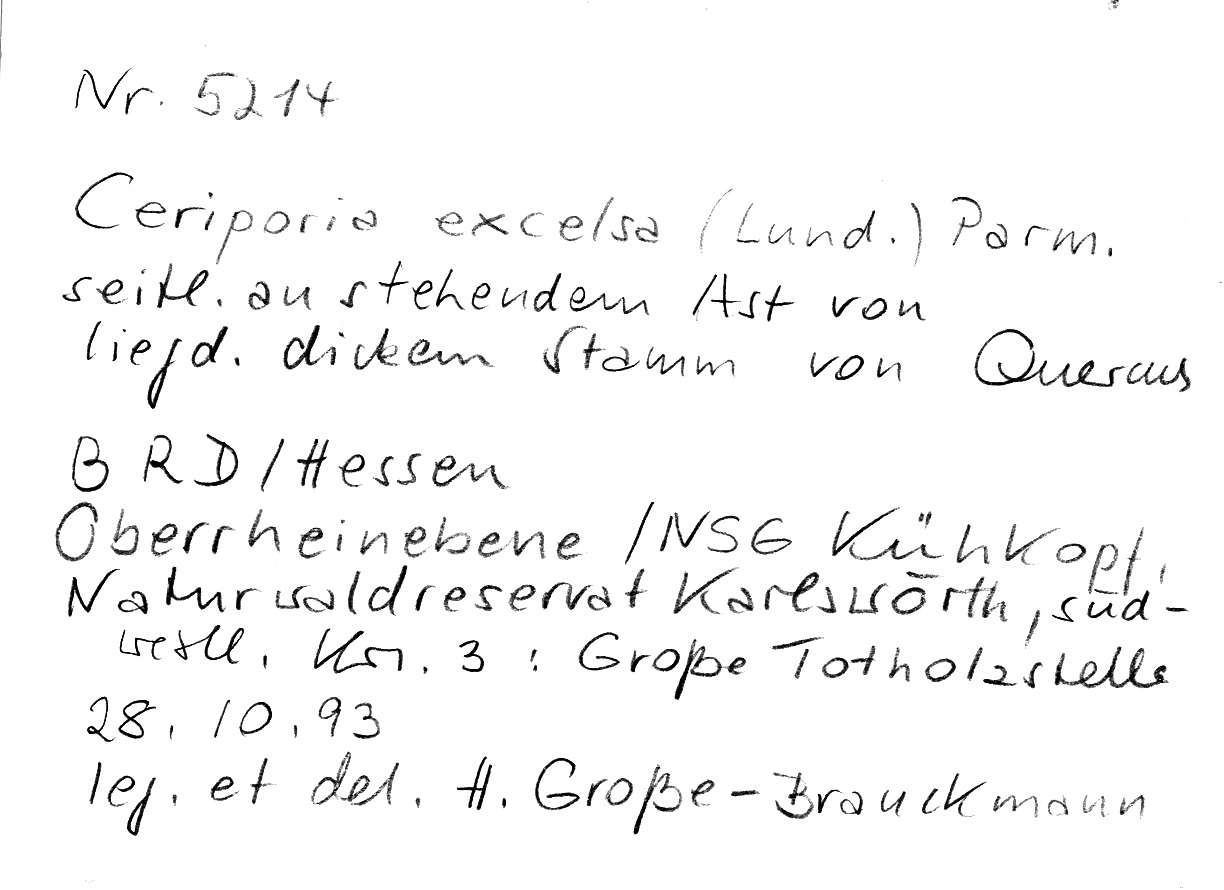 Nr. 5214
Ceriporia excelsa (Lund.) Parm.
seitl. an stehendem Ast von
liegd. dickem Stamm von Quercus
BRD/Hessen
Oberrheinebene /NSG Kühkopf,
Naturwaldreservat Karlswörth, süd-
westl. Krs. 3 : Große Totholzstelle
28.10.93
leg. et det. H. Große-Brauckmann